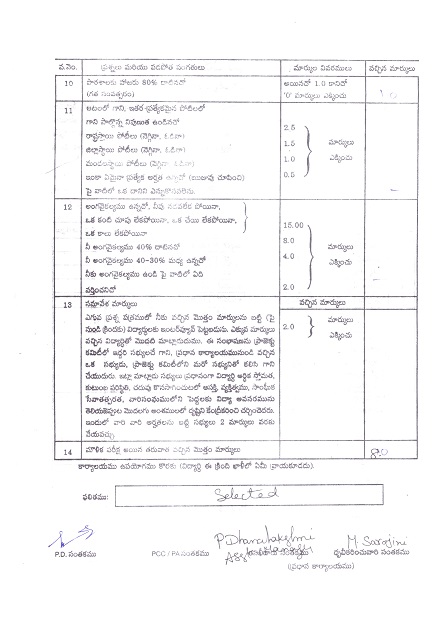 వ.నెం. ప్రశ్నలు మరియు పడవోత సంగతులు మార్కుల వివరములు వచ్చిన మార్కులు
10 పాఠశాలకు హాజరు 80% దాటినచో అయినచో 1.0 కానిచో
(గత సంవత్సరం) '0' మార్కులు ఎక్కించు 1.0
11 ఆటలలో గాని, ఇతర ప్రత్యేకమైన పోటీలలో
గాని పాల్గొన్న నిపుణత ఉండినచో 2.5
రాష్ట్రస్థాయి పోటీలు (నెగ్గినా, ఓడినా) 1.5 మార్కులు
జిల్లాస్థాయి పోటీలు (నెగ్గినా, ఓడినా) 1.0 ఎక్కించు
మండలస్థాయి పోటీలు (నెగ్గినా, ఓడినా) 0.5
ఇంకా ఏమైనా ప్రత్యేక అర్హత ఉన్నచో (ఋజువు చూపించి)
పై వాటిలో ఒక దానిని ఎన్నుకొనవలెను.
12 అంగవైకల్యము ఉన్నచో, నీవు నడవలేక పోయినా,
ఒక కంటి చూపు లేకపోయినా, ఒక చేయి లేకపోయినా, 15.00
ఒక కాలు లేకపోయినా 8.0
నీ అంగవైకల్యము 40% దాటినచో 4.0 మార్కులు
నీ అంగవైకల్యము 40-30% మధ్య ఉన్నచో ఎక్కించు
నీకు అంగవైకల్యము ఉండి పై వాటిలో ఏది
వర్తించనిచో 2.0
13 సమావేశ మార్కులు వచ్చిన మార్కులు
ఎగువ ప్రశ్న పత్రములో నీకు వచ్చిన మొత్తం మార్కులను బట్టి (పై
నుండి క్రిందకు) విద్యార్థులకు ఇంటర్వ్యూవ్ పెట్టబడును. ఎక్కువ మార్కులు 2.0 మార్కులు
వచ్చిన విద్యార్థితో మొదటి మాట్లాడుదుము. ఈ సంభాషణను ప్రాజెక్టు ఎక్కించు
కమిటీలో ఇద్దరి సభ్యులచే గాని, ప్రధాన కార్యాలయమునుండి వచ్చిన
ఒక సభ్యుడు, ప్రాజెక్టు కమిటీలోని మరో సభ్యునితో కలిసి గాని
చేయుదురు. ఇట్లా మాట్లాడు సభ్యులు ప్రధానంగా విద్యార్థి ఆర్థిక స్తోమత,
కుటుంబ పరిస్థితి, చదువు కొనసాగించుటలో ఆసక్తి, వ్యక్తిత్వము, సాంఘిక
సేవాతత్పరత, వారిసంఘములోని పెద్దలకు విద్యా అవసరమును
తెలియజెప్పుట మొదలగు అంశములలో దృష్టిని కేంద్రీకరించి చర్చించెదరు.
ఇందులో వారి వారి అర్హతలను బట్టి సభ్యులు 2 మార్కులు వరకు
వేయవచ్చు
14 మౌళిక పరీక్ష అయిన తరువాత వచ్చిన మొత్తం మార్కులు 8.0
కార్యాలయము ఉపయోగము కొరకు (విద్యార్థి ఈ క్రింది ఖాళీలో ఏమీ వ్రాయకూడదు).
ఫలితము: Selected
P. Dhanalakshmi M. Sarojini
P.D. సంతకము PCC / PA సంతకము దృవీకరించువారి సంతకము
(ప్రధాన కార్యాలయము)